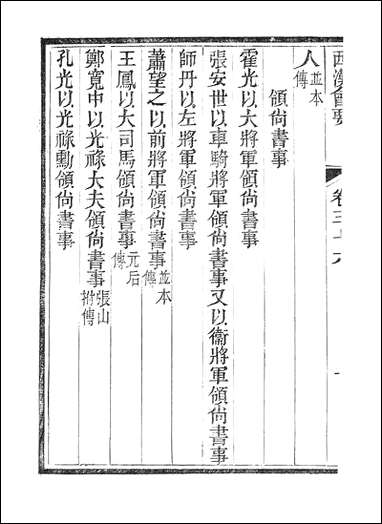 西漢會要
卷三十六
人並本傳
領尙書事
霍光以大將軍領尙書事
張安世以車騎將軍領尙書事又以衞將軍領尙書事
師丹以左將軍領尙書事
蕭望之以前將軍領尙書事並本傳
王鳳以大司馬領尙書事元后傳
鄭寬中以光祿大夫領尙書事張山拊傳
孔光以光祿勳領尙書事